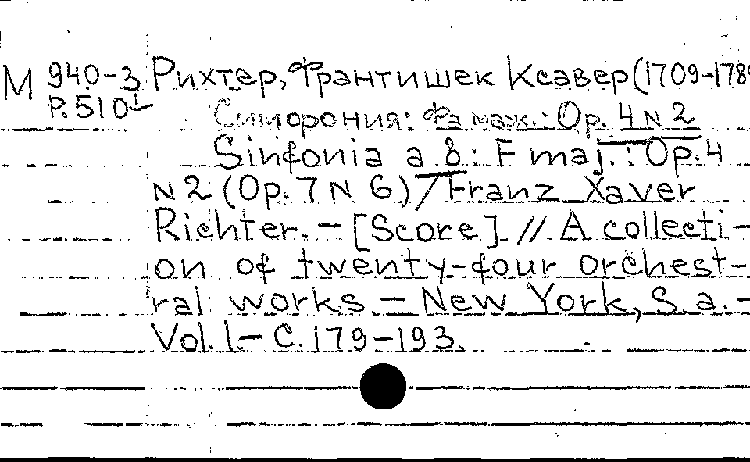 М 940-3 Рихтер, Франтишек Ксавер (1709-1789
Р.510 Симфония: Фа маж.: Op. 4 N 2
Sinfonia a 8: F maj.: Op. 4
N 2 (Op. 7 N 6) / Franz Xaver
Richter. - [Score] // A collecti-
on of twenty-four orchest-
ral works. - New York, S. a. -
Vol. 1 - C. 179-193.